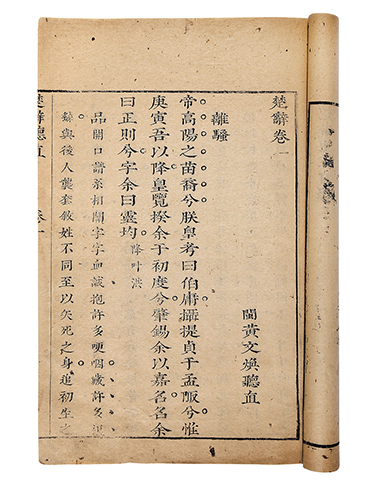 楚辭卷一
閩黃文煥聽直
離騷
帝高陽之苗裔兮朕皇考曰伯庸攝提貞于孟陬兮惟
庚寅吾以降皇覽揆余于初度兮肇錫余以嘉名名余
曰正則兮字余曰靈均 降叶洪
品開口譜系相關字字血誠抱許多哽咽歲許多
辭與後人襲套敘姓不同至以矢死之身追初生之
楚辭聽直 卷一